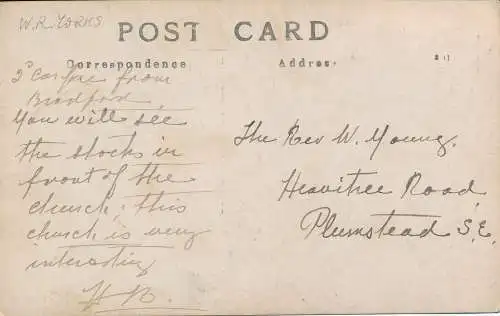 W.R. YORKS
POST CARD
Correspondence
Address
2d Car fare from
Bradford.
You will see
the stocks in
front of the
church; this
church is very
interesting
H R.
The Rev W. Young.
Heavitree Road,
Plumstead S.E.